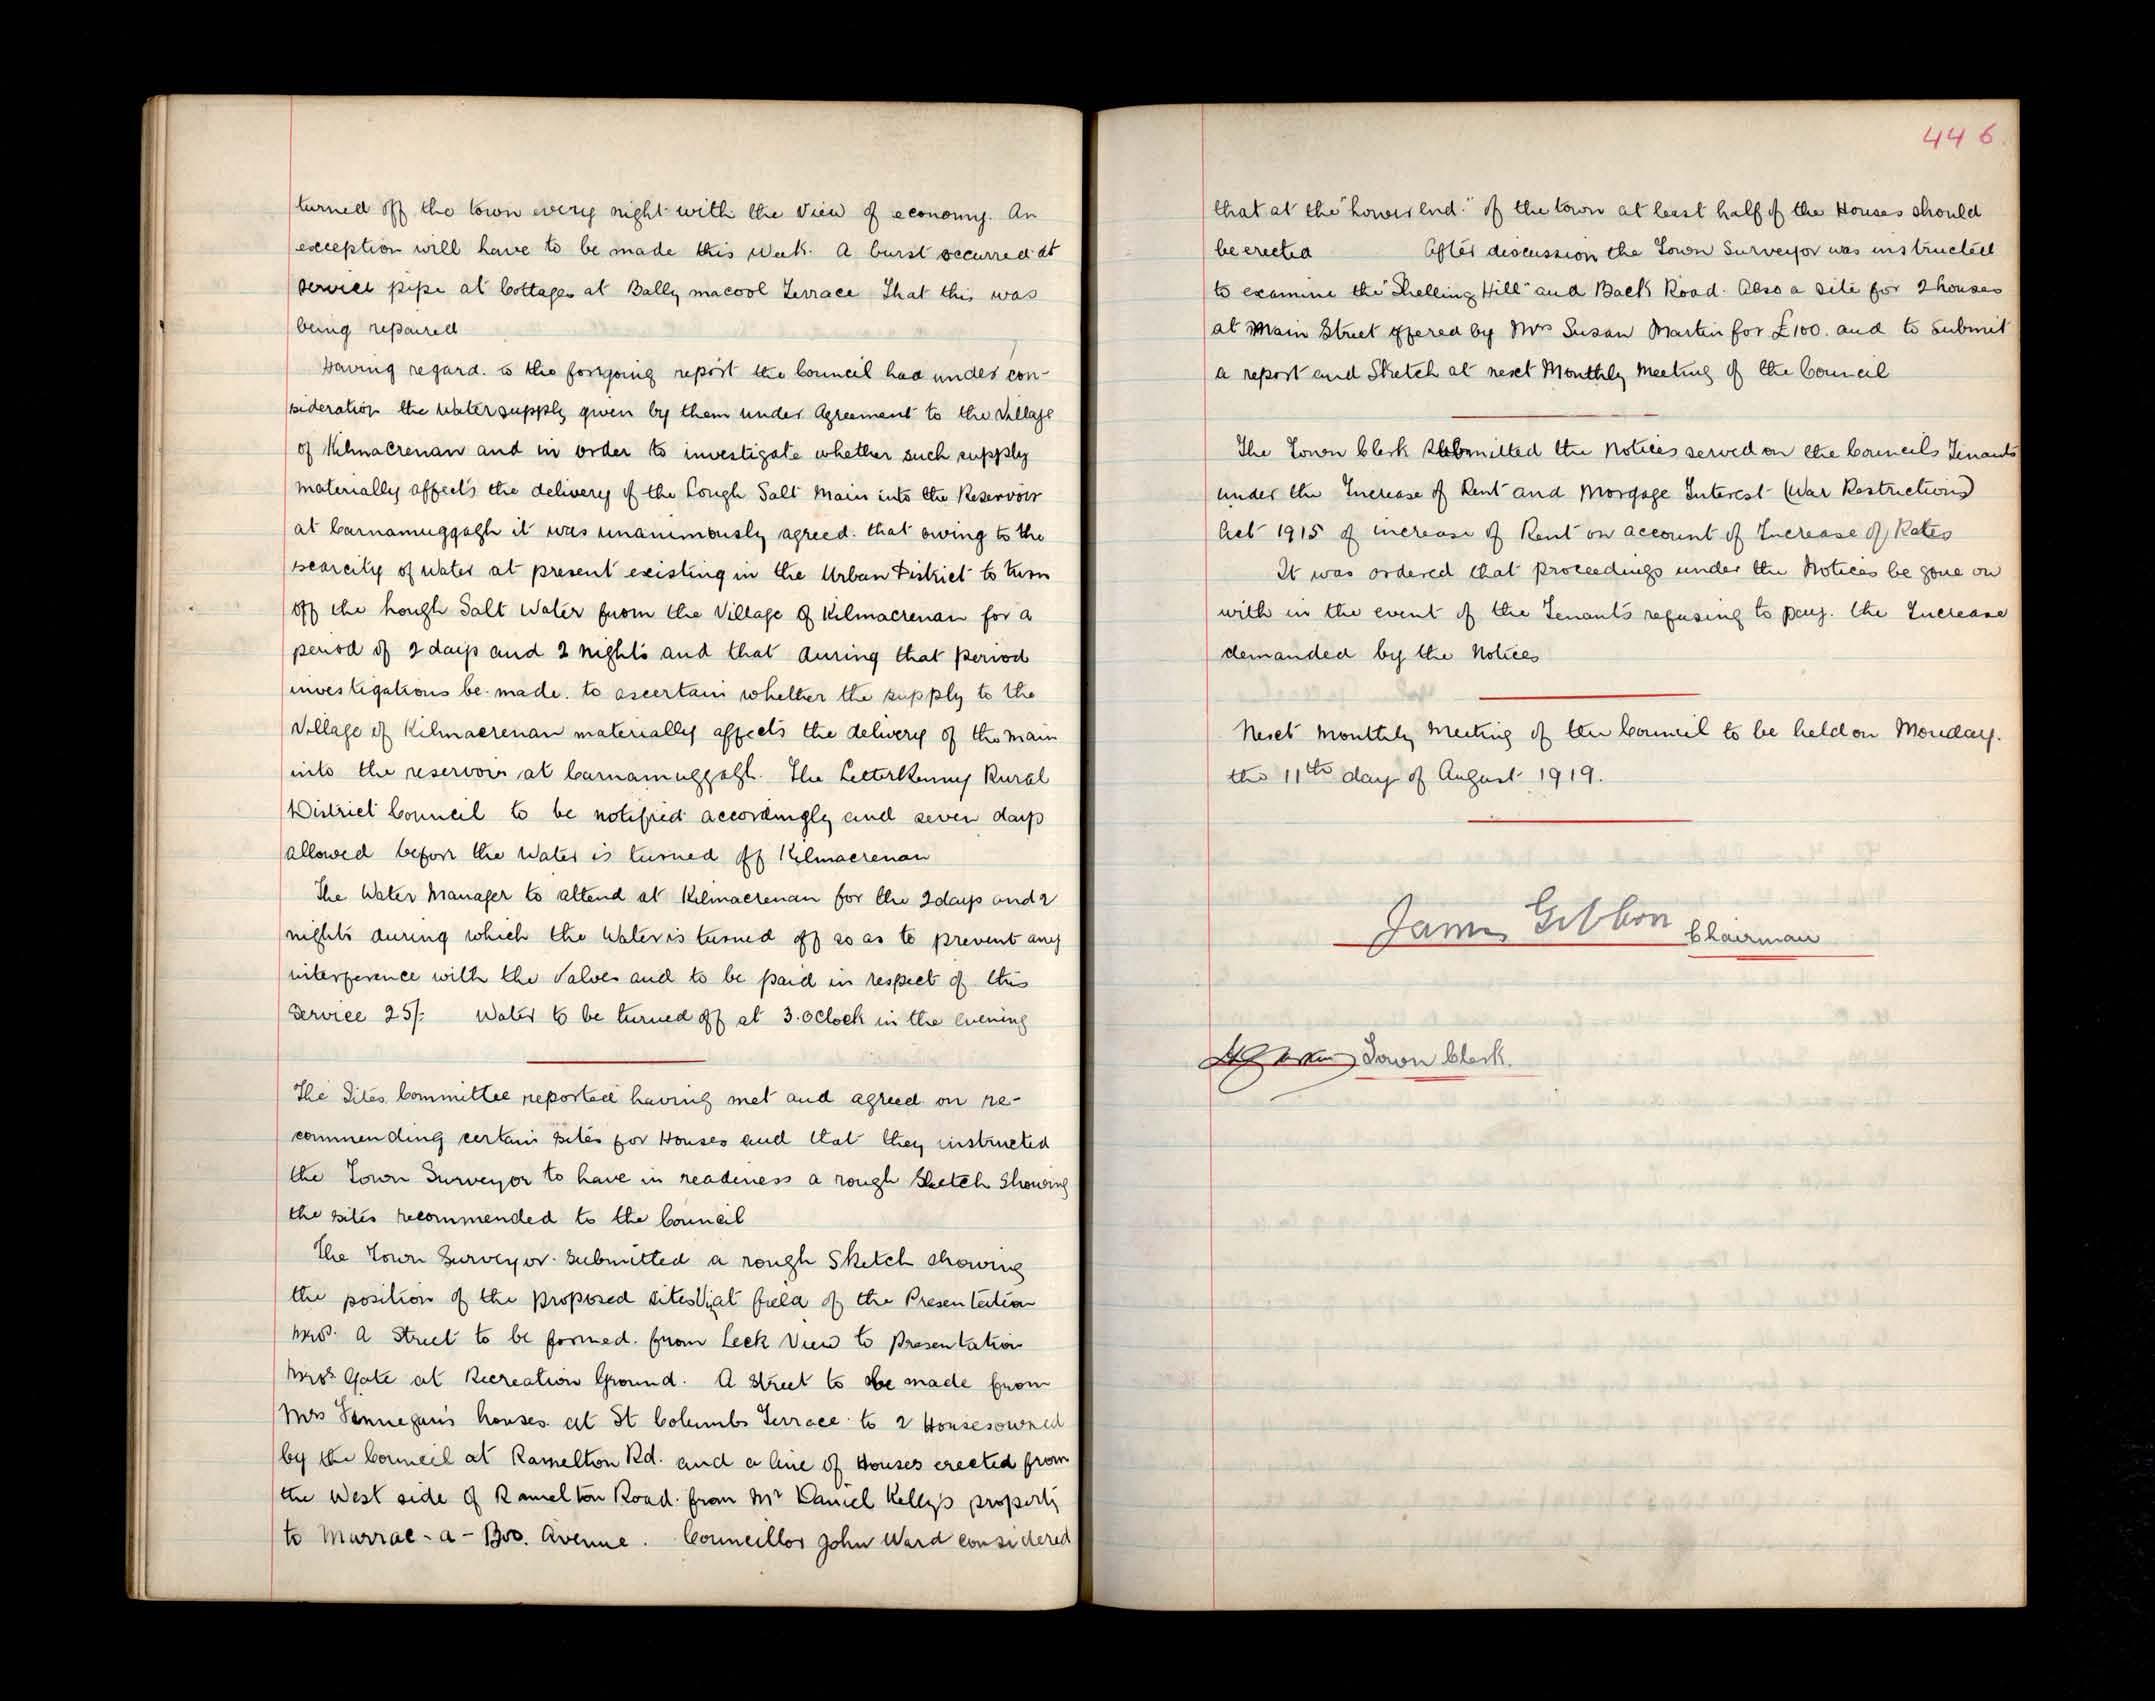 turned off the town every night with the View of economy. An
exception will have to be made this Week. A burst occurred at
service pipe at Cottages at Bally macool Terrace That this was
being repaired
Having regard. to the foregoing report the Council had under con-
sideration the Watersupply given by them under Agreement to the Village
of Kilmacrenan and in order to investigate whether such supply
materially affects the delivery of the Lough Salt Main into the Reservoir
at Carnamuggagh it was unanimously agreed. that owing to the
scarcity of Water at present existing in the Urban District to turn
off the Lough Salt Water from the Village of Kilmacrenan for a
period of 2 days and 2 nights and that during that period
investigations be made. to ascertain whether the supply to the
Village of Kilmacrenan materially affects the delivery of the main
into the reservoir at Carnamuggagh. The Letterkenny Rural
District Council to be notified accordingly and seven days
allowed before the Water is turned off Kilmacrenan
The Water Manager to attend at Kilmacrenan for the 2 days and 2
nights during which the Water is turned off so as to prevent any
interference with the Valves and to be paid in respect of this
Service 25/- Water to be turned off at 3.oClock in the evening
The Sites Committee reported having met and agreed on re-
commending certain sites for Houses and that they instructed
the Town Surveyor to have in readiness a rough Sketch Showing
the sites recommended to the Council
The Town Surveyor. submitted a rough Sketch showing
the position of the proposed sites Viz at field of the Presentation
Mrs. A Street to be formed. from Leck View to Presentation
Mrs. Gate at Recreation Ground. A Street to be made from
Mrs Fannegan's houses at St Columbs Terrace to 2 Houses owned
by the Council at Ramelton Rd. and a line of Houses erected from
the West side of Ramelton Road. from Mr Daniel Kelly's property
to Murrac-a-Boo. Avenue. Councillor John Ward considered
446.
that at the "Lower End." of the town at least half of the Houses should
be erected After discussion the Town Surveyor was instructed
to examine the "Shelling Hill" and Back Road. Also a site for 2 houses
at Main Street offered by Mrs Susan Martin for £100. and to submit
a report and Sketch at next Monthly Meeting of the Council
The Town Clerk Submitted the Notices served on the Councils Tenants
under the Increase of Rent and Morgage Interest (War Restrictions)
Act 1915 of increase of Rent on account of Increase of Rates
It was ordered that proceedings under the Notices be gone on
with in the event of the Tenants refusing to pay. the Increase
demanded by the Notices
Next Monthly Meeting of the Council to be held on Monday.
the 11th day of August 1919.
James Gibbon Chairman
Town Clerk.